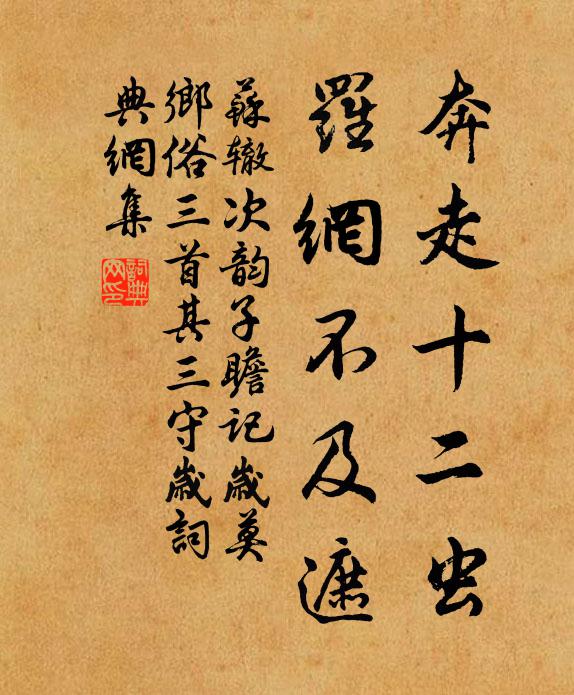 奔走十二虫
羅網不及遮
蘇辙次韵子瞻記歲莫
鄉俗三首其三守歲詞
典網集
詞典
网印